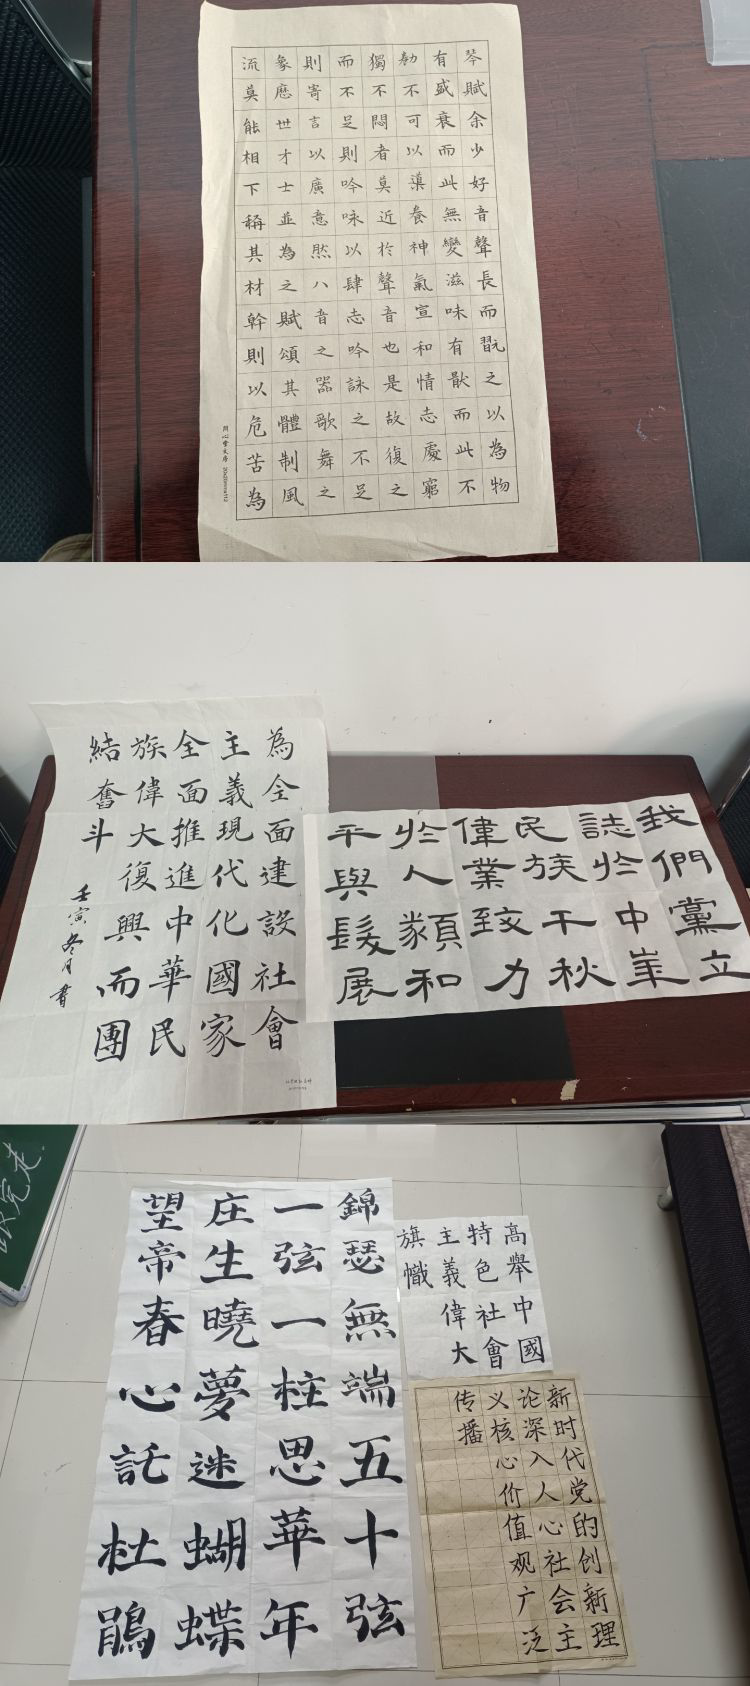 琴賦余少好音聲長而翫之以為物
有盛衰而此無變滋味有猒而此不
勌不可以導養神氣宣和情志處窮
獨不悶者莫近於聲音也是故復之
而不足則吟咏以肆志吟詠之不足
則寄言以廣意然八音之器歌舞之
象歷世才士並為之賦頌其體制風
流莫能相下稱其材幹則以危苦為
為全面建設社會
主義現代化國家
全面推進中華民
族偉大復興而團
結奮斗
壬寅冬月書
我們黨立
誌於中華
民族千秋
偉業致力
於人類和
平與發展
錦瑟無端五十弦
一弦一柱思華年
庄生曉夢迷蝴蝶
望帝春心託杜鵑
高舉中國
特色社會
主義偉大
旗幟
新时代党的创新理
论深入人心社会主
义核心价值观广泛
传播